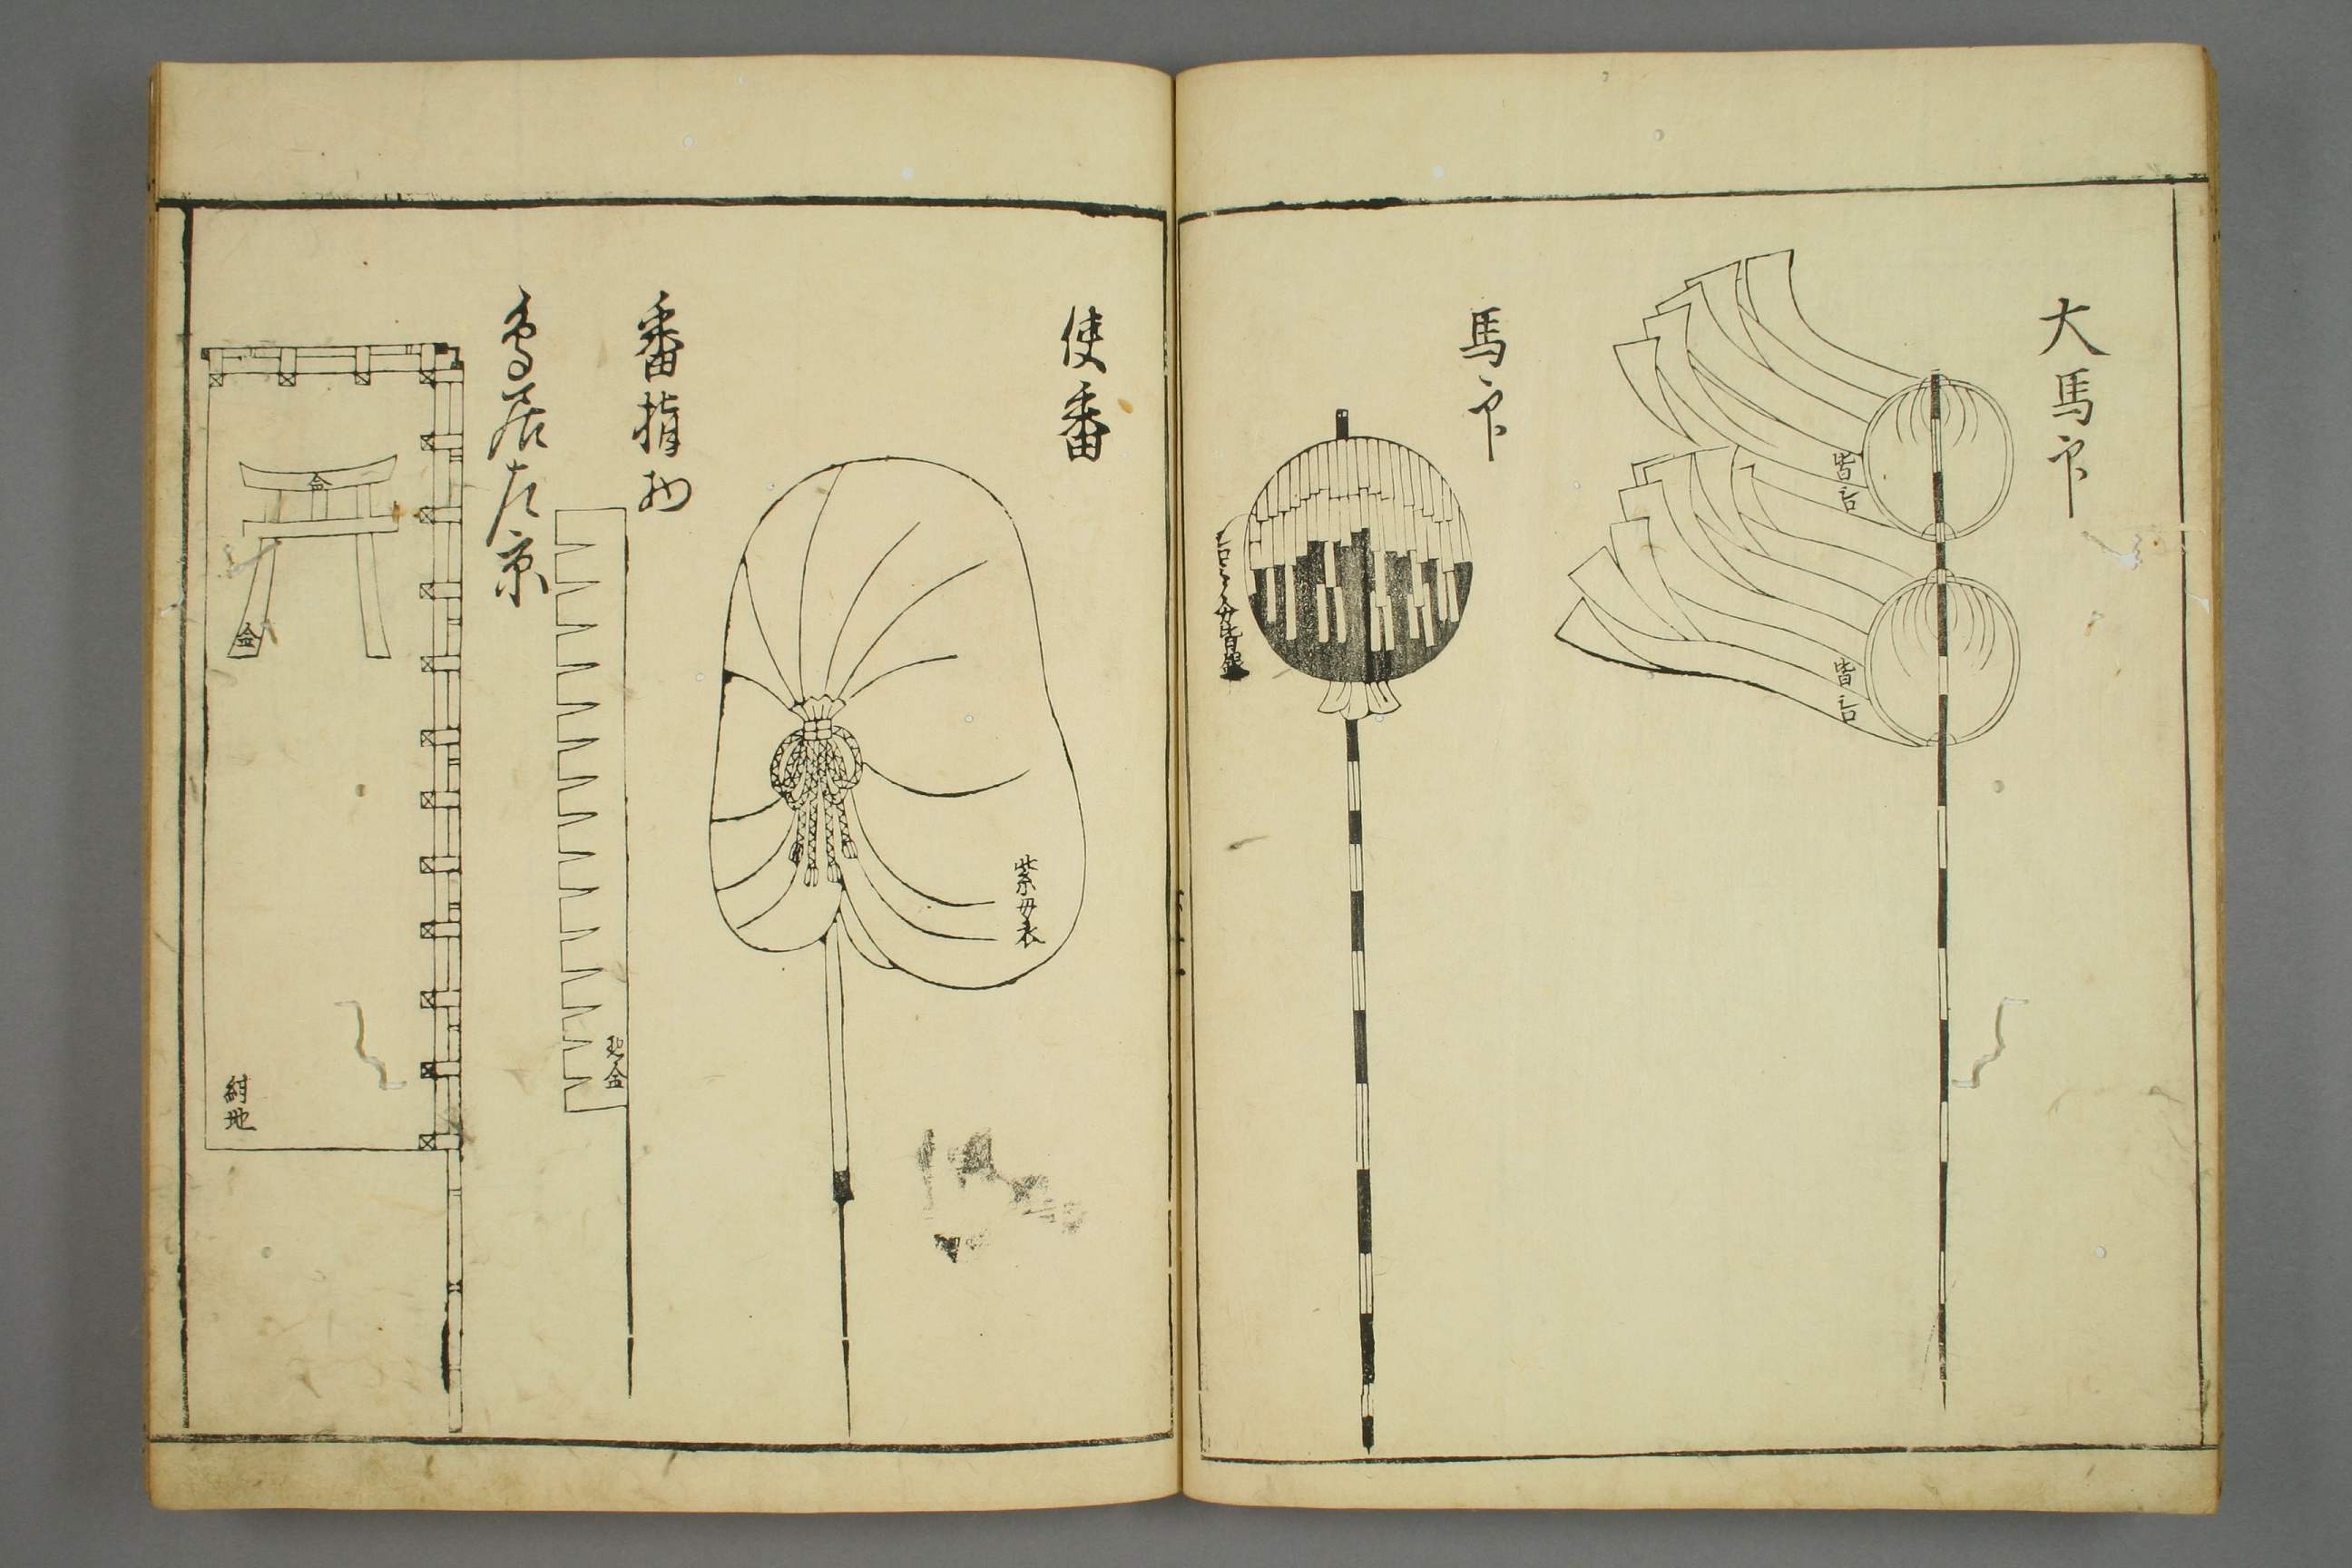 大馬印
皆白
皆白
馬印
使番
紫母衣
番指物
地金
鳥居左京
金
金
紺地